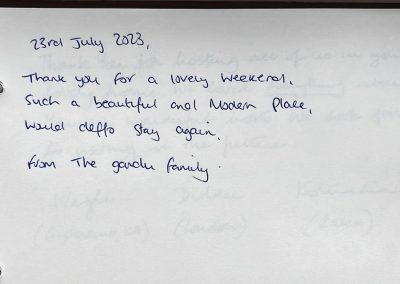 23rd July 2023,
Thank you for a lovely weekend.
Such a beautiful and Modern Place,
Would deffo stay again.
from The gandu family.